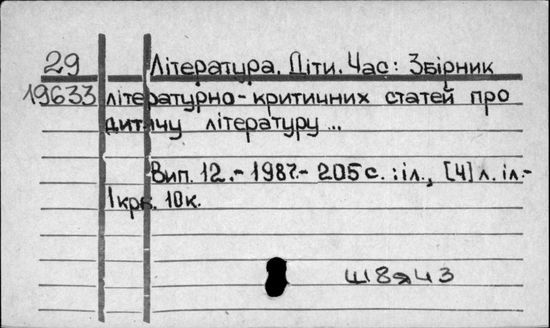 29 Література. Діти. Час: Збірник
19633 літературно-критичних статей про
дитячу літературу...
Вип. 12.- 1987.- 205 с. : іл., [4] л. іл.-
1 крб. 10 к.
Ш8я43